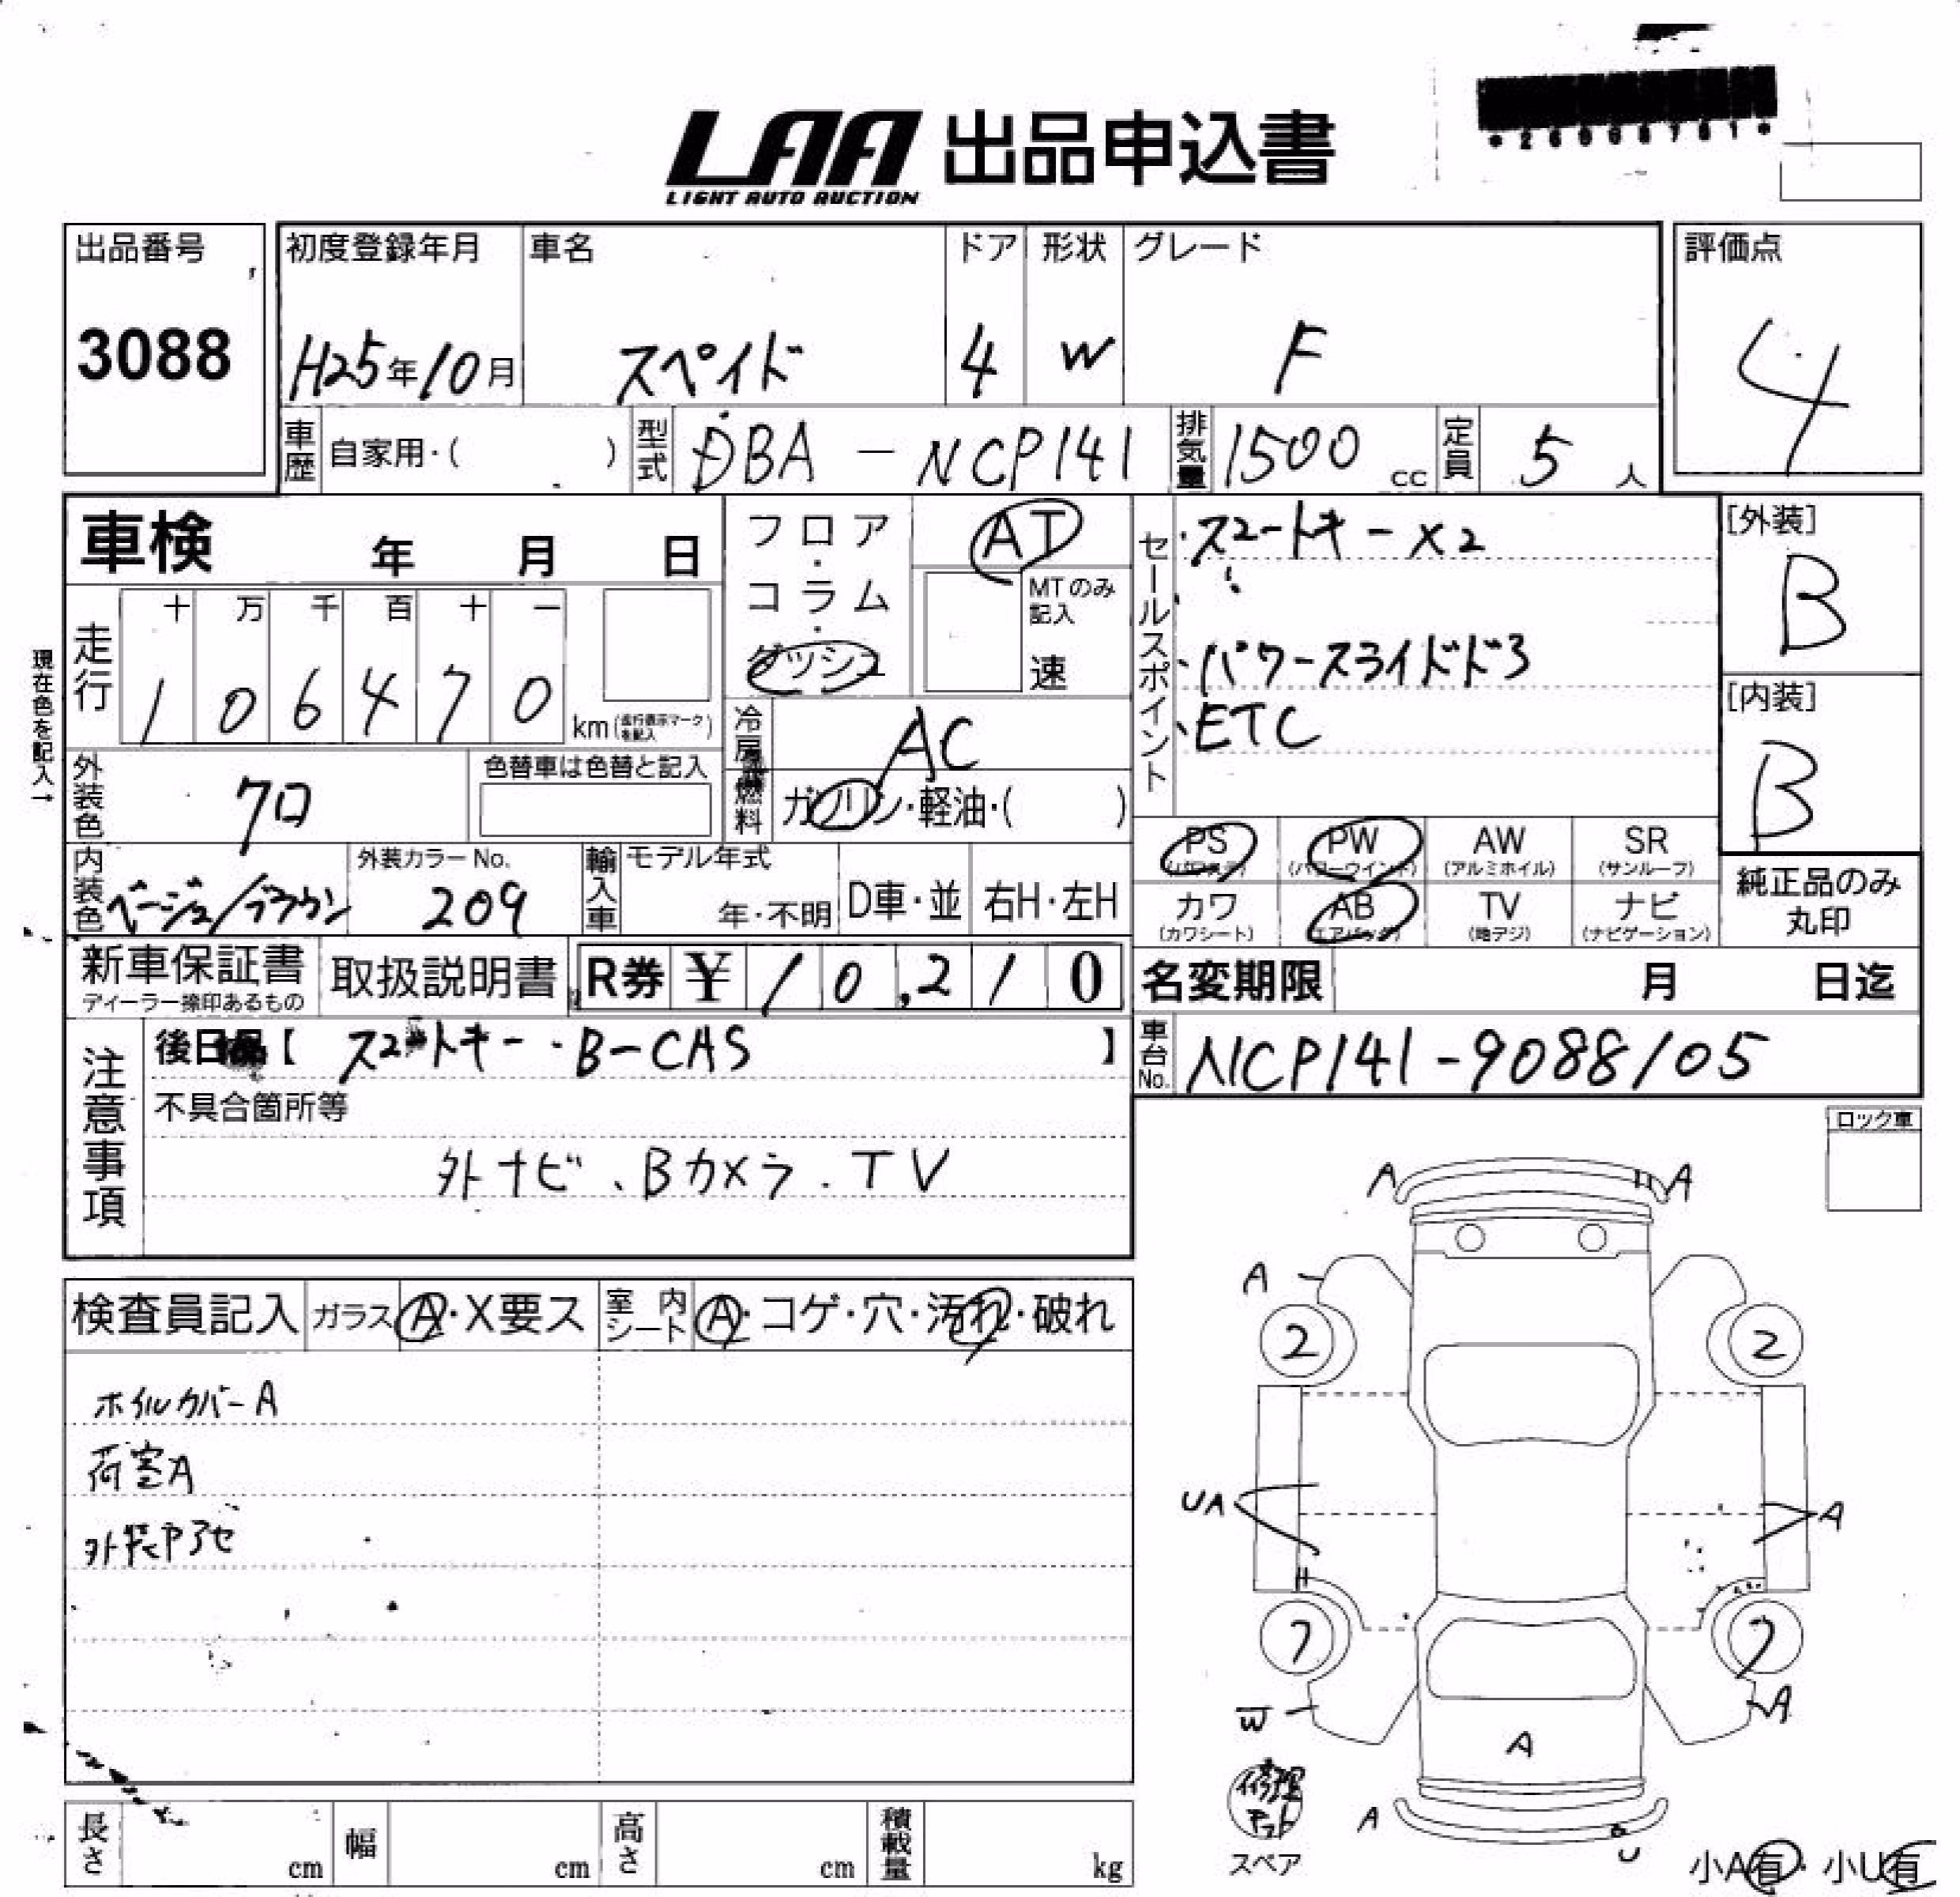 LAA 出品申込書
LIGHT AUTO AUCTION
出品番号
3088
初度登録年月 車名 ドア 形状 グレード
H25年10月 スペイド 4 W F
評価点
4
車歴 自家用・( ) 型式 DBA-NCP141 排気量 1500 cc 定員 5 人
車検 年 月 日
フロア・コラム・ダッシュ
AT
MTのみ記入
速
セールスポイント
・スマートキー×2
・パワースライドドア
・ETC
[外装]
B
[内装]
B
現在色を記入→
走行
十 万 千 百 十 一
1 0 6 4 7 0 km(走行表示マークを記入)
冷房 AC
外装色 クロ
色替車は色替と記入
燃料 ガソリン・軽油・( )
内装色 ベージュ/ブラウン
外装カラーNo.
209
輸入車 モデル年式
年・不明 D車・並 右H・左H
PS (パワステ) PW (パワーウインド) AW (アルミホイル) SR (サンルーフ)
カワ (カワシート) AB (エアバッグ) TV (地デジ) ナビ (ナビゲーション)
純正品のみ
丸印
新車保証書
ディーラー捺印あるもの
取扱説明書 R券 ¥10,210
名変期限 月 日迄
注意事項
後日品【 スマートキー・B-CAS 】
車台No. NCP141-9088105
不具合箇所等
外ナビ、Bカメラ.TV
ロック車
検査員記入 ガラス A・X要ス 室内シート A・コゲ・穴・汚れ・破れ
ホイルカバーA
荷室A
外装ヤヤセ
A A
A
2 2
UA A
7 7
W A
A
修理キット
スペア
A U
小A有・小U有
長さ cm 幅 cm 高さ cm 積載量 kg